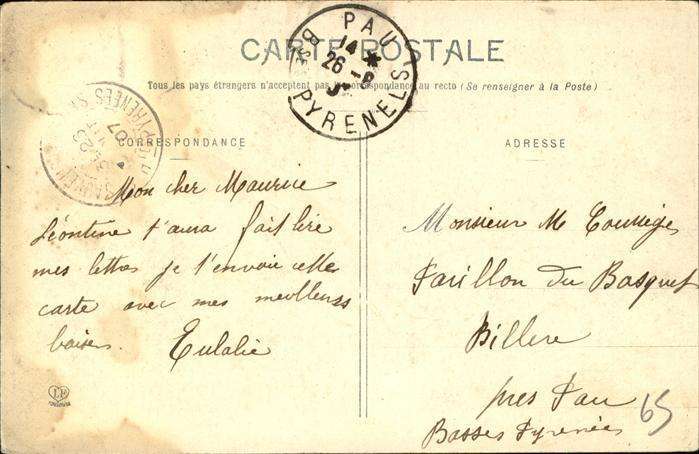 CARTE POSTALE
Tous les pays étrangers n'acceptent pas la correspondance au recto (Se renseigner à la Poste)
PAU
14 *
26 -8
BSES PYRENEES
PYRENEES
23
07
CORRESPONDANCE
ADRESSE
Mon cher Maurice
Léontine t'aura fait lire
mes lettres je t'envoie cette
carte avec mes meilleurs
baisers Eulalie
Monsieur M
Pavillon du Bosquet
Billere
près Pau
Basses Pyrénées
65
LF